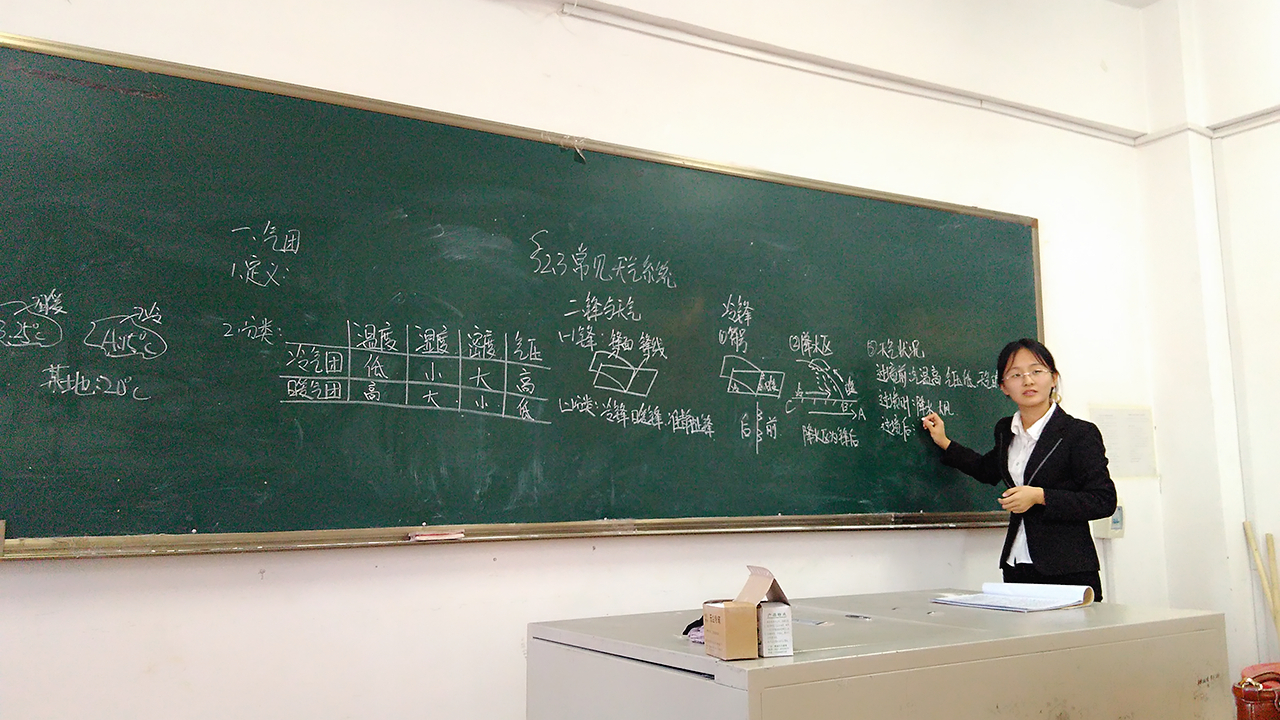 §2.3 常见天气系统
一、气团
1.定义:
暖
冷
B.25℃
A.15℃
某地:20℃
2.分类:
温度 湿度 密度 气压
冷气团 低 小 大 高
暖气团 高 大 小 低
二.锋与天气
(一)锋:锋面 锋线
(二)分类:冷锋 暖锋 准静止锋
冷锋
后 前
②降水区
A
降水区为锋后
③天气状况
过境前:气温高 气压低
过境时:降水 大风
过境后: